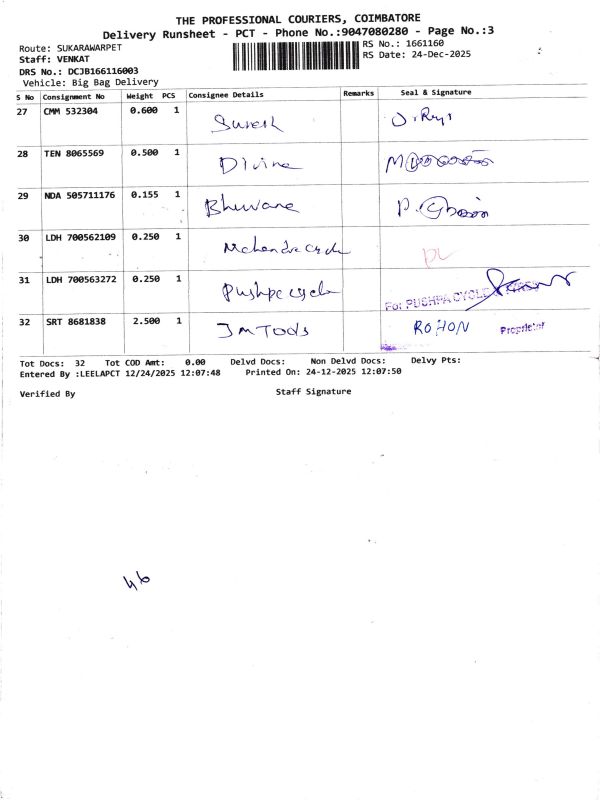 THE PROFESSIONAL COURIERS, COIMBATORE
Delivery Runsheet - PCT - Phone No.:9047080280 - Page No.:3
Route: SUKARAWARPET RS No.: 1661160
Staff: VENKAT RS Date: 24-Dec-2025
DRS No.: DCJB166116003
Vehicle: Big Bag Delivery
S No Consignment No Weight PCS Consignee Details Remarks Seal & Signature
27 CMM 532304 0.600 1 Suresh
28 TEN 8065569 0.500 1 Divine
29 NDA 505711176 0.155 1 Bhuvana P.
30 LDH 700562109 0.250 1 Mahendra cycle
31 LDH 700563272 0.250 1 Pushpa cycle For PUSHPA CYCLE
32 SRT 8681838 2.500 1 JM Tools ROHON Proprietor
Tot Docs: 32 Tot COD Amt: 0.00 Delvd Docs: Non Delvd Docs: Delvy Pts:
Entered By :LEELAPCT 12/24/2025 12:07:48 Printed On: 24-12-2025 12:07:50
Verified By Staff Signature
46